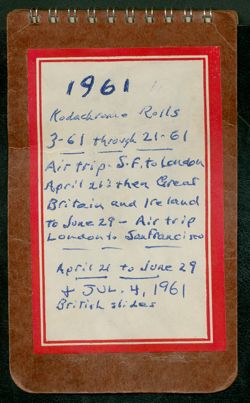 1961
Kodachrome Rolls
3-61 through 21-61
Air trip - S.F. to London
April 21; then Great
Britain and Ireland
to June 29 - Air trip
London to San Francisco
April 21 to June 29
+ JUL. 4, 1961
British slides